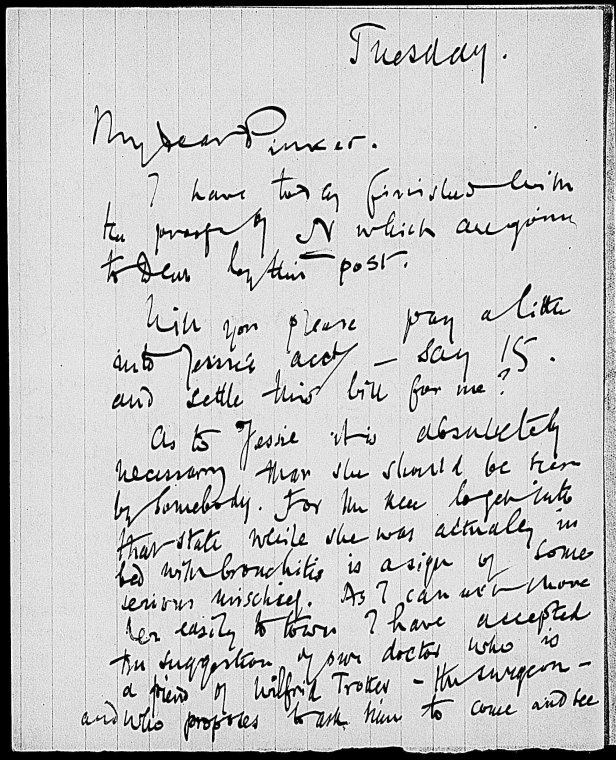 Tuesday.
My dear Pinker.
I have today finished with
the proofs of N which are going
to Dear by this post.
Will you please pay a little
into Jessie's acct – say 15.
and settle this bill for me?
As to Jessie it is absolutely
necessary that she should be seen
by somebody. For the knee to get into
that state while she was actually in
bed with bronchitis is a sign of some
serious mischief. As I can not move
her easily to town I have accepted
the suggestion of our doctor who is
a friend of Wilfrid Trotter – the surgeon –
and who proposes to ask him to come and see